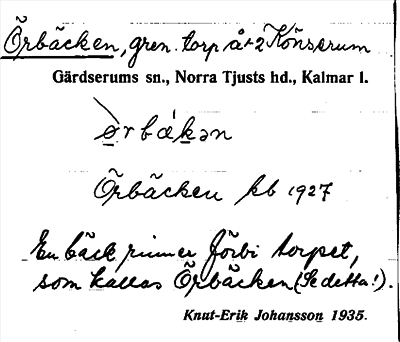 Örbäcken, gren. torp å 2 Könserum
Gärdserums sn., Norra Tjusts hd., Kalmar l.
ørbäkən
Örbäcken kb 1927
En bäck rinner förbi torpet,
som kallas Örbäcken (Se detta!).
Knut-Erik Johansson 1935.